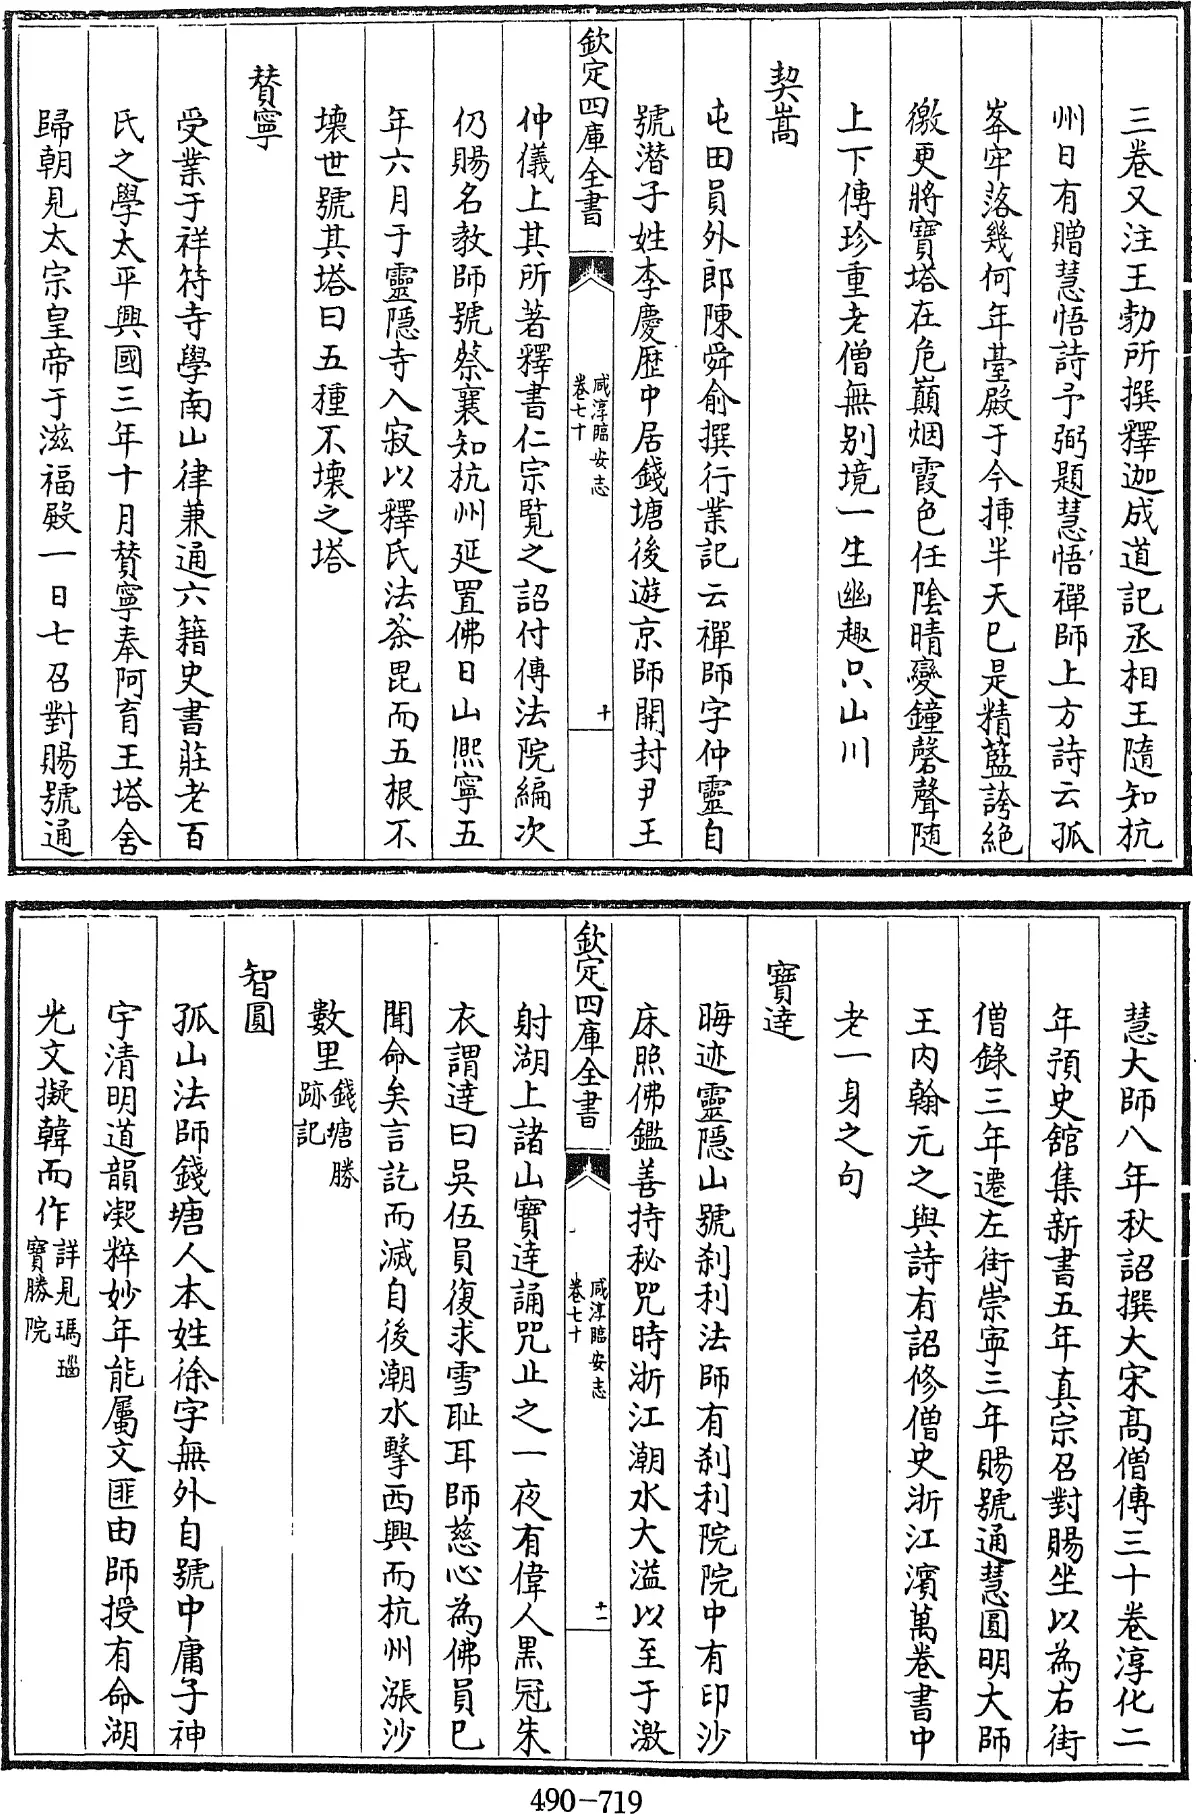 三卷又注王勃所撰釋迦成道記丞相王隨知杭
州日有贈慧悟詩予弼題慧悟禪師上方詩云孤
峯牢落幾何年臺殿于今揷半天已是精藍誇絶
徼更將寶塔在危巔烟霞色任陰晴變鐘磬聲隨
上下傳珍重老僧無别境一生幽趣只山川
契嵩
屯田員外郎陳舜俞撰行業記云禪師字仲靈自
號潛子姓李慶歴中居錢塘後遊京師開封尹王
欽定四庫全書
咸淳臨安志
卷七十
十
仲儀上其所著釋書仁宗覽之詔付傳法院編次
仍賜名教師號蔡襄知杭州延置佛日山熈寧五
年六月于靈隱寺入寂以釋氏法茶毘而五根不
壊世號其塔曰五種不壊之塔
賛寧
受業于祥符寺學南山律兼通六籍史書莊老百
氏之學太平興國三年十月賛寧奉阿育王塔舍
歸朝見太宗皇帝于滋福殿一日七召對賜號通
慧大師八年秋詔撰大宋髙僧傳三十卷淳化二
年預史舘集新書五年真宗召對賜坐以為右街
僧錄三年遷左街崇寧三年賜號通慧圓明大師
王内翰元之與詩有詔修僧史浙江濱萬卷書中
老一身之句
寶達
晦迹靈隱山號刹利法師有刹利院院中有印沙
床照佛鑑善持秘咒時浙江潮水大溢以至于激
欽定四庫全書
咸淳臨安志
卷七十
十一
射湖上諸山寶達誦咒止之一夜有偉人黑冠朱
衣謂達曰吳伍員復求雪耻耳師慈心為佛員已
聞命矣言訖而滅自後潮水擊西興而杭州漲沙
數里錢塘勝跡記
智圓
孤山法師錢塘人本姓徐字無外自號中庸子神
宇清明道韻凝粹妙年能屬文匪由師授有命湖
光文擬韓而作詳見瑪瑙寶勝院
490-719